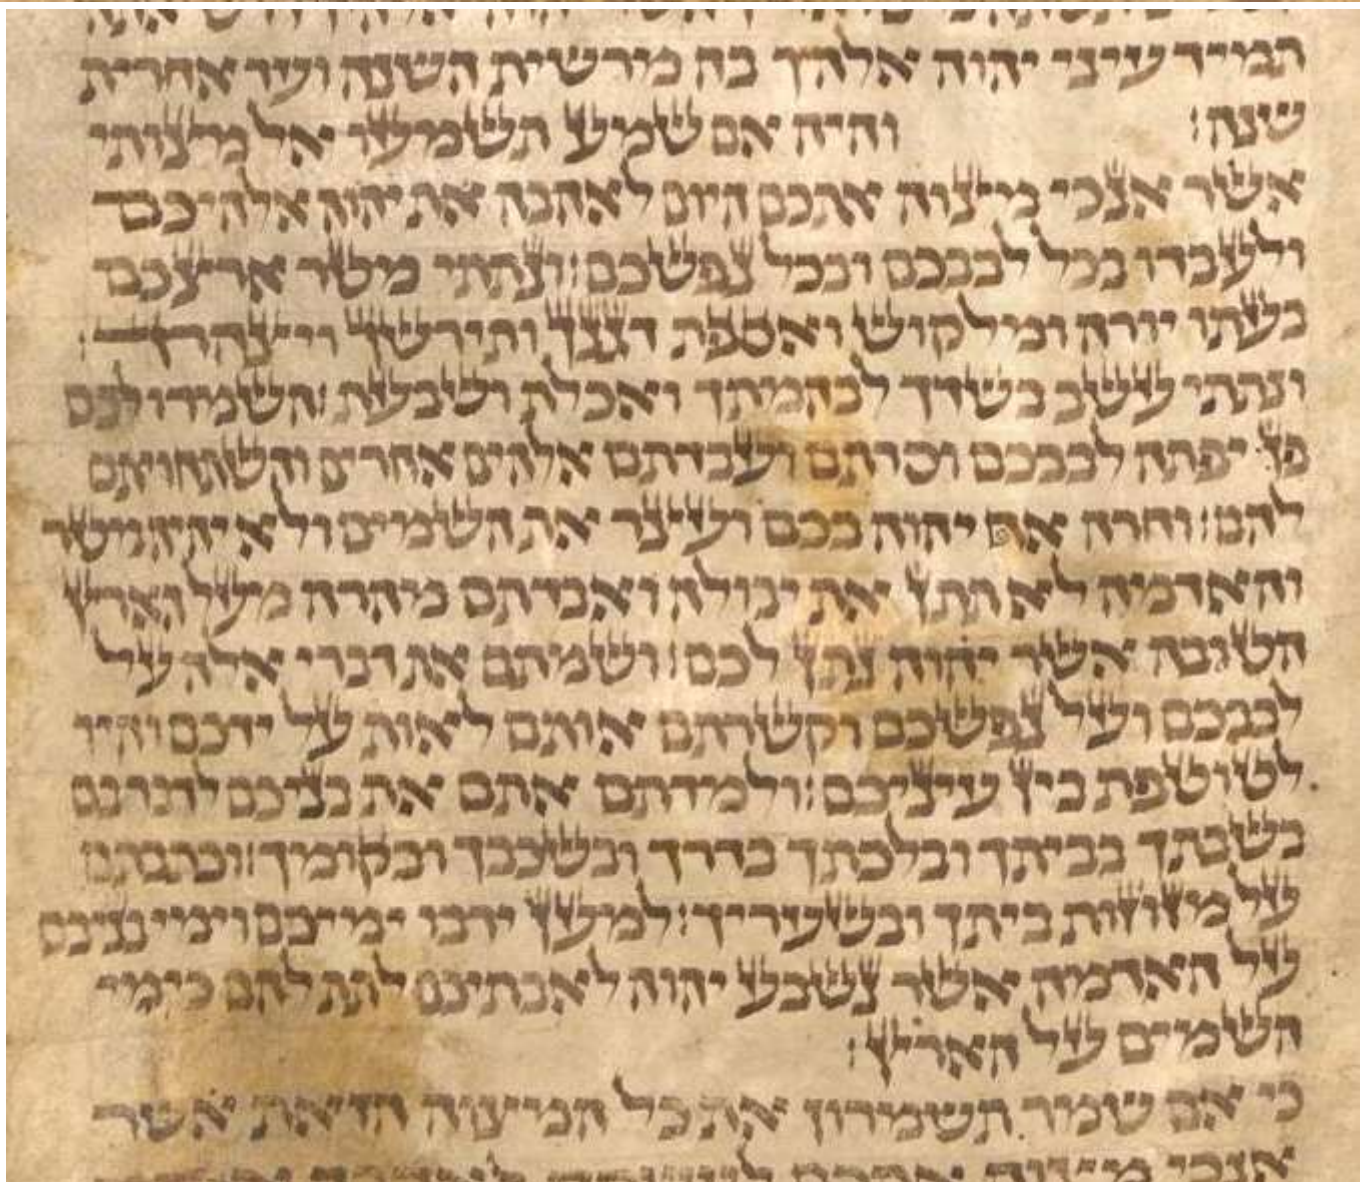 תמיד עיני יהוה אלהיך בה מרשית השנה ועד אחרית
שנה׃ והיה אם שמע תשמעו אל מצותי
אשר אנכי מצוה אתכם היום לאהבה את יהוה אלהיכם
ולעבדו בכל לבבכם ובכל נפשכם׃ ונתתי מטר ארצכם
בעתו יורה ומלקוש ואספת דגנך ותירשך ויצהרך׃
ונתתי עשב בשדך לבהמתך ואכלת ושבעת׃ השמרו לכם
פן יפתה לבבכם וסרתם ועבדתם אלהים אחרים והשתחויתם
להם׃ וחרה אף יהוה בכם ועצר את השמים ולא יהיה מטר
והאדמה לא תתן את יבולה ואבדתם מהרה מעל הארץ
הטבה אשר יהוה נתן לכם׃ ושמתם את דברי אלה על
לבבכם ועל נפשכם וקשרתם אותם לאות על ידכם והיו
לטוטפת בין עיניכם׃ ולמדתם אתם את בניכם לדבר בם
בשבתך בביתך ובלכתך בדרך ובשכבך ובקומך׃ וכתבתם
על מזוזות ביתך ובשעריך׃ למען ירבו ימיכם וימי בניכם
על האדמה אשר נשבע יהוה לאבתיכם לתת להם כימי
השמים על הארץ׃
כי אם שמור תשמרון את כל המצוה הזאת אשר